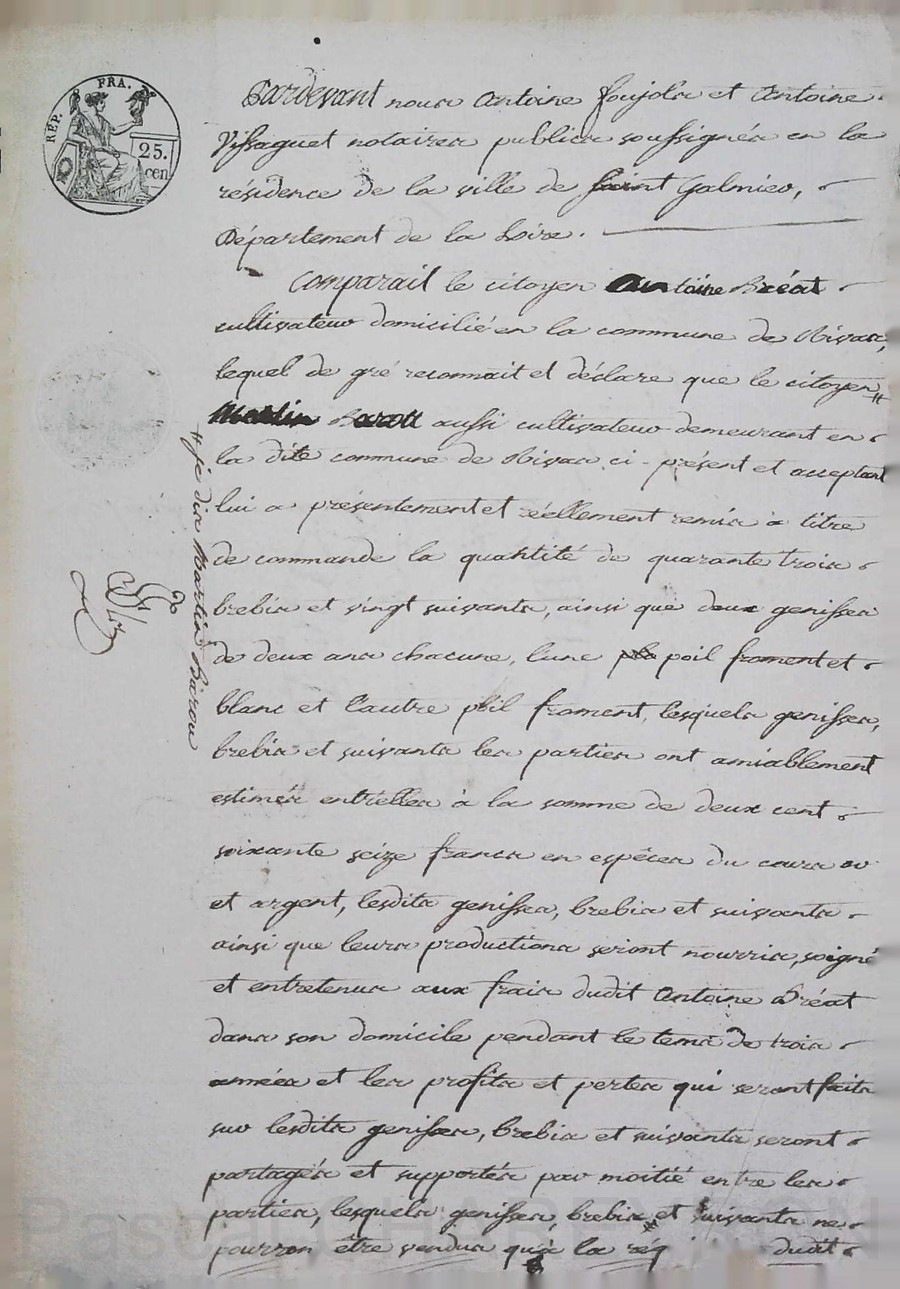 RÉP. FRA.
25.
cen
Pardevant nous Antoine foujols et Antoine
Vissaguet notaires publics soussignés en la
résidence de la ville de saint Galmier,
Département de la Loire.
Comparait le citoyen Antoine Bréat
cultivateur domicilié en la commune de Rivas,
lequel de gré reconnait et déclare que le citoyen #
Martin aussi cultivateur demeurant en
la dite commune de Rivas ci-présent et acceptant
lui a présentement et réellement remis a titre
de commande la quantité de quarante trois
brebis et vingt suivants, ainsi que deux genisses
de deux ans chacune, l'une poil froment et
blanc et l'autre poil froment, lesquels genisses,
brebis et suivants les parties ont amiablement
estimés entr'elles à la somme de deux cent
soixante seize francs en espèces du cours or
et argent, lesdits genisses, brebis et suivants
ainsi que leurs productions seront nourris, soigné
et entretenus aux frais dudit Antoine Bréat
dans son domicile pendant le tems de trois
années et les profits et pertes qui seront faits
sur lesdits genisses, brebis et suivants seront
partagés et supportés par moitié entre les
parties, lesquels genisses, brebis et suivants ne
pourron être vendus qu'à la réq dudit
# je dis Martin Barou